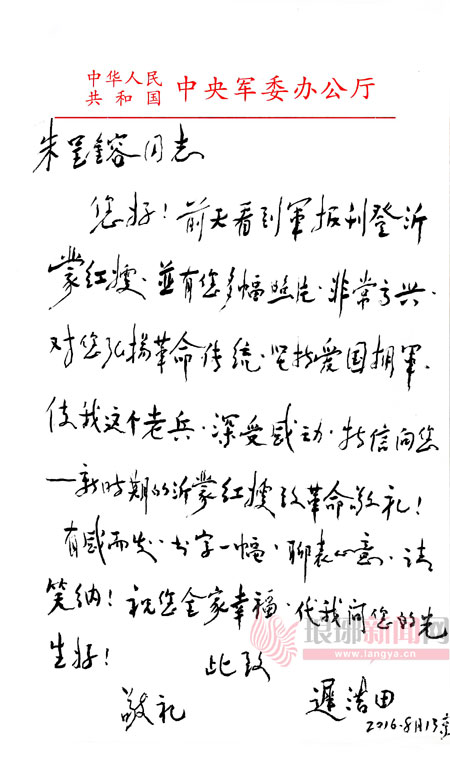 中华人民
共和国 中央军委办公厅
朱呈鎔同志
您好！前天看到軍报刊登沂
蒙红嫂·並有您多幅照片·非常高兴·
对您弘揚革命传统·坚持爱国拥軍·
使我这个老兵·深受感动·特信向您
一新时期的沂蒙红嫂致革命敬礼！
有感而发·书字一幅·聊表心意·请
笑纳！祝您全家幸福·代我问您的先
生好！ 此致
琅琊新闻网
www.langya.cn
敬礼 遲浩田
2016.8月13京